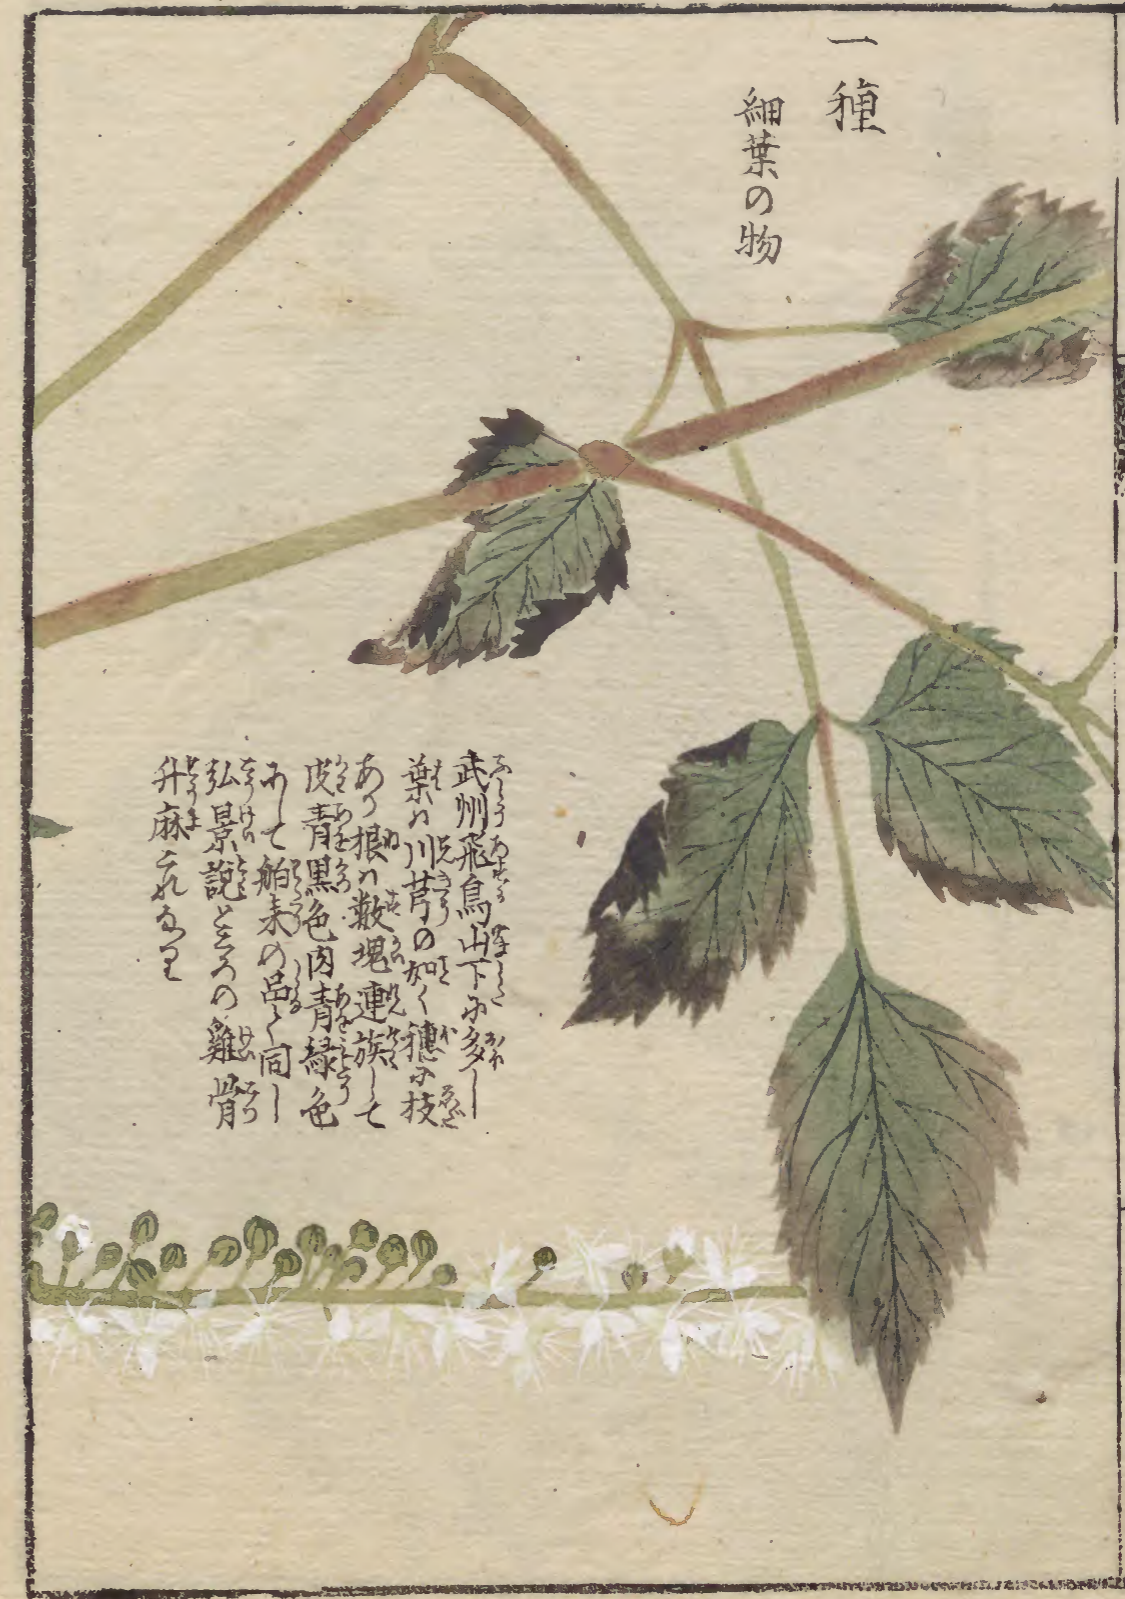 一種
細葉の物
武州飛鳥山下に多し
葉ハ川芎の如く穂に枝
あり根ハ数塊連族して
皮青黒色肉青緑色
にして舶来の品と同し
弘景説ところの雞骨
升麻これなり